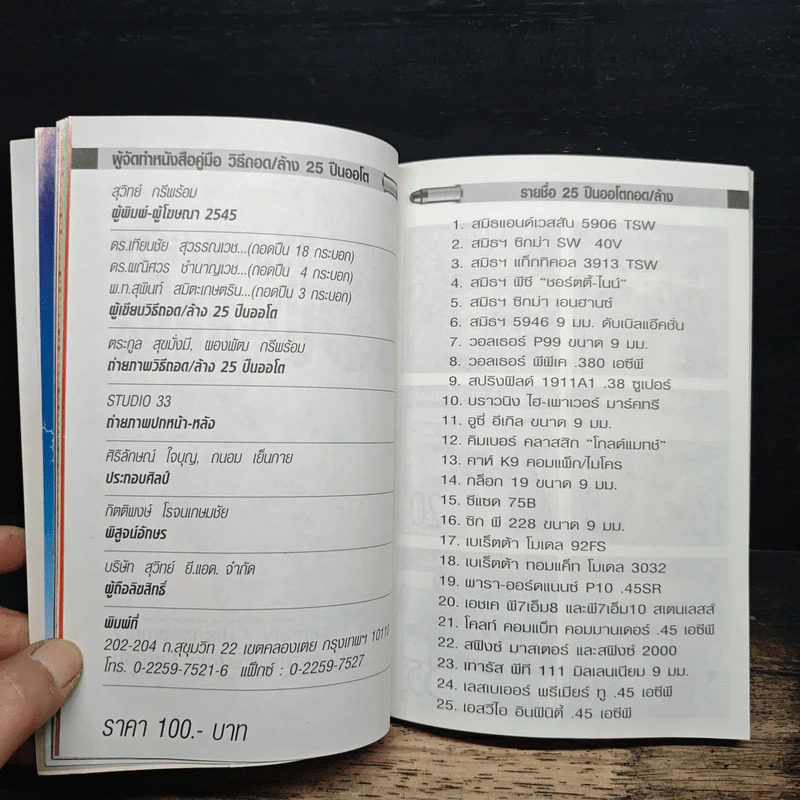 ผู้จัดทำหนังสือคู่มือ วิธีถอด/ล้าง 25 ปืนออโต
สุวิทย์ กรีพร้อม
ผู้พิมพ์-ผู้โฆษณา 2545
ดร.เทียนชัย สุวรรณเวช...(ถอดปืน 18 กระบอก)
ดร.พณิศวร ชำนาญเวช...(ถอดปืน 4 กระบอก)
พ.ท.สุพินท์ สมิตะเกษตริน...(ถอดปืน 3 กระบอก)
ผู้เขียนวิธีถอด/ล้าง 25 ปืนออโต
ตระกูล สุขมั่งมี, พองพัฒ กรีพร้อม
ถ่ายภาพวิธีถอด/ล้าง 25 ปืนออโต
STUDIO 33
ถ่ายภาพปกหน้า-หลัง
ศิริลักษณ์ ใจบุญ, ถนอม เย็นกาย
ประกอบศิลป์
กิตติพงษ์ โรจนเกษมชัย
พิสูจน์อักษร
บริษัท สุวิทย์ ยี.แอด. จำกัด
ผู้ถือลิขสิทธิ์
พิมพ์ที่
202-204 ถ.สุขุมวิท 22 เขตคลองเตย กรุงเทพฯ 10110
โทร. 0-2259-7521-6 แฟ็กซ์ : 0-2259-7527
ราคา 100.- บาท
รายชื่อ 25 ปืนออโตถอด/ล้าง
1. สมิธแอนด์เวสสัน 5906 TSW
2. สมิธฯ ซิกม่า SW 40V
3. สมิธฯ แท็กทิคอล 3913 TSW
4. สมิธฯ พีซี “ชอร์ตตี้-ไนน์”
5. สมิธฯ ซิกม่า เอนฮานซ์
6. สมิธฯ 5946 9 มม. ดับเบิลแอ๊คชั่น
7. วอลเธอร์ P99 ขนาด 9 มม.
8. วอลเธอร์ พีพีเค .380 เอซีพี
9. สปริงฟิลด์ 1911A1 .38 ซูเปอร์
10. บราวนิง ไฮ-เพาเวอร์ มาร์คทรี
11. อูซี่ อีเกิล ขนาด 9 มม.
12. คิมเบอร์ คลาสสิก “โกลด์แมทช์”
13. คาห์ K9 คอมแพ็ก/ไมโคร
14. กล็อก 19 ขนาด 9 มม.
15. ซีแซด 75B
16. ซิก พี 228 ขนาด 9 มม.
17. เบเร็ตต้า โมเดล 92FS
18. เบเร็ตต้า ทอมแค็ท โมเดล 3032
19. พารา-ออร์ดแนนซ์ P10 .45SR
20. เอชเค พี7เอ็ม8 และพี7เอ็ม10 สเตนเลสส์
21. โคลท์ คอมแบ็ท คอมมานเดอร์ .45 เอซีพี
22. สฟิงซ์ มาสเตอร์ และสฟิงซ์ 2000
23. เทารัส พีที 111 มิลเลนเนียม 9 มม.
24. เลสเบเออร์ พรีเมียร์ ทู .45 เอซีพี
25. เอสวีไอ อินฟินิตี้ .45 เอซีพี